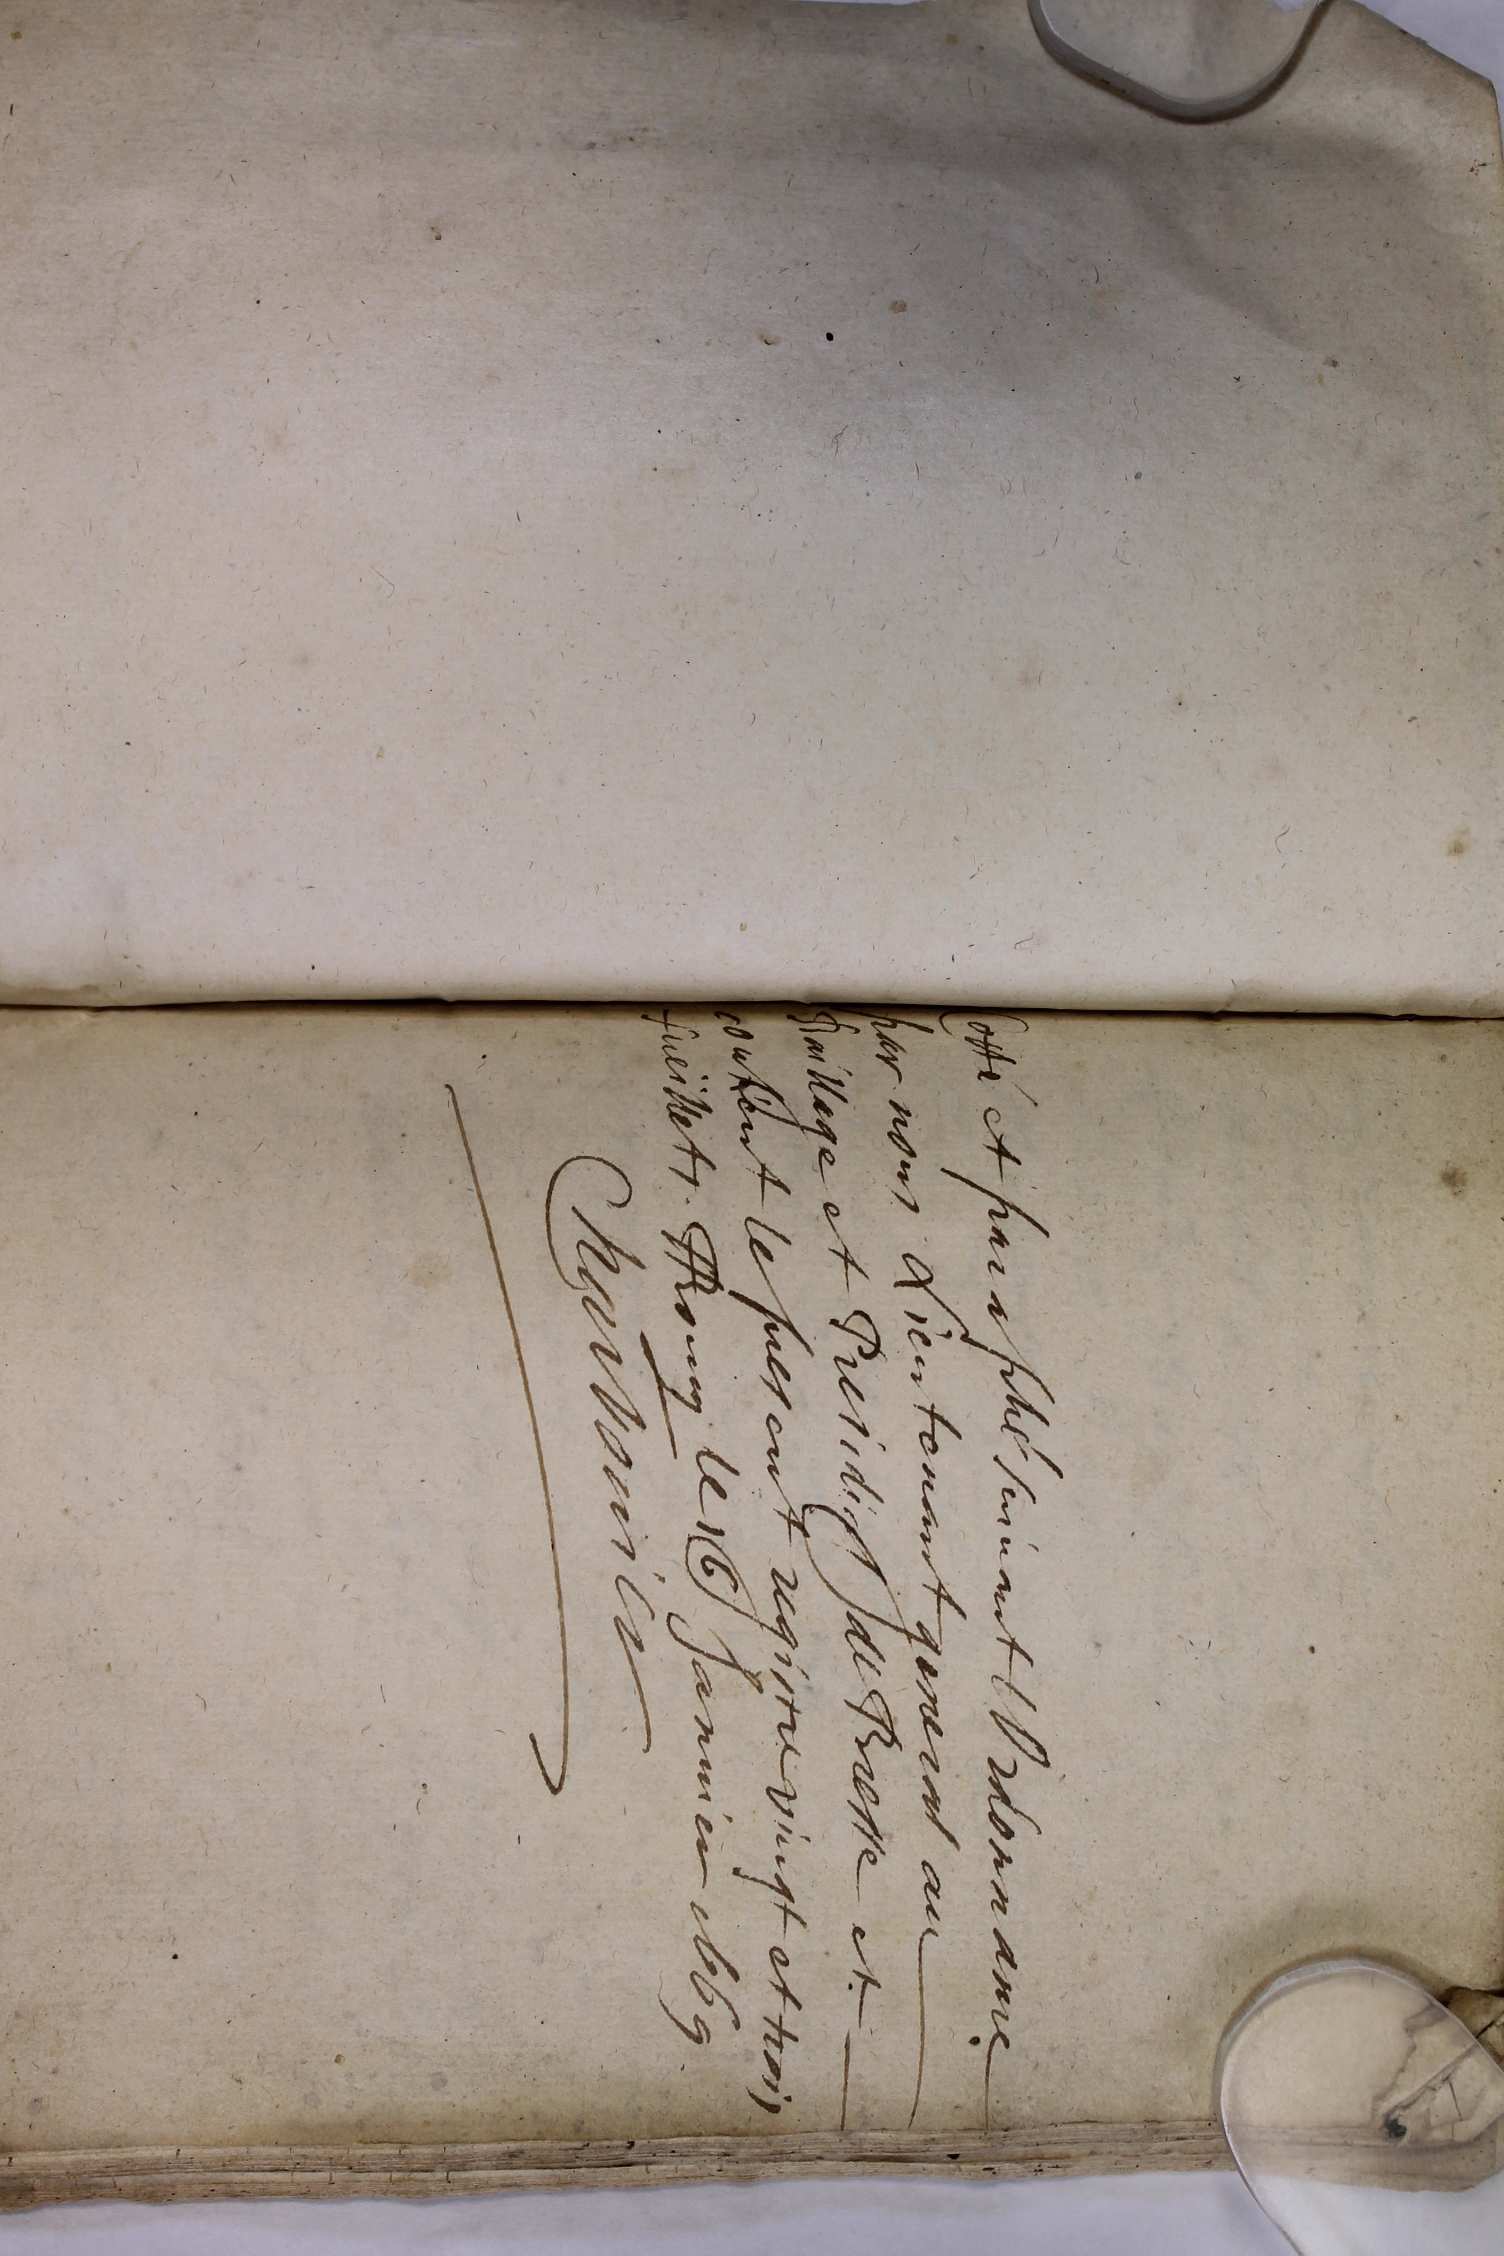 Cotté et paraphé suivant l'Ordonnance
par nous Lieutenant general au
Bailliage et Presidial de Bresse et
contient le present registre vingt et trois
fueillets. A Bourg le 16 Janvier 1669
Charbonnier